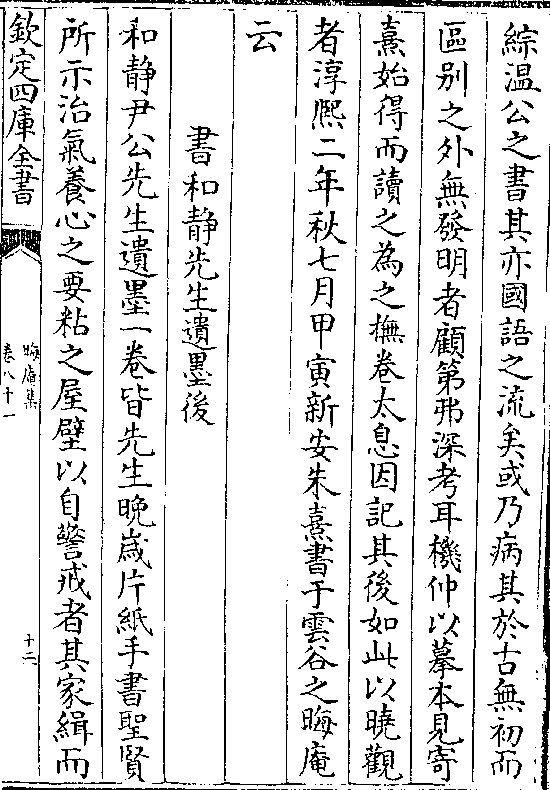 綜温公之書其亦國語之流矣或乃病其於古無初而
區别之外無發明者顧第弗深考耳機仲以摹本見寄
熹始得而讀之為之撫卷太息因記其後如此以曉觀
者淳熙二年秋七月甲寅新安朱熹書于雲谷之晦庵
云
書和靜先生遺墨後
和靜尹公先生遺墨一卷皆先生晩歲片紙手書聖賢
所示治氣養心之要粘之屋壁以自警戒者其家緝而
欽定四庫全書
晦庵集
卷八十一
十二